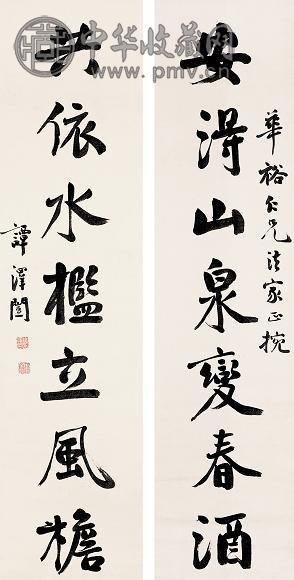 中华收藏网
www.pmv.cn
華裕仁兄法家正捥
安得山泉變春酒
共依水檻立風檐
譚澤闓